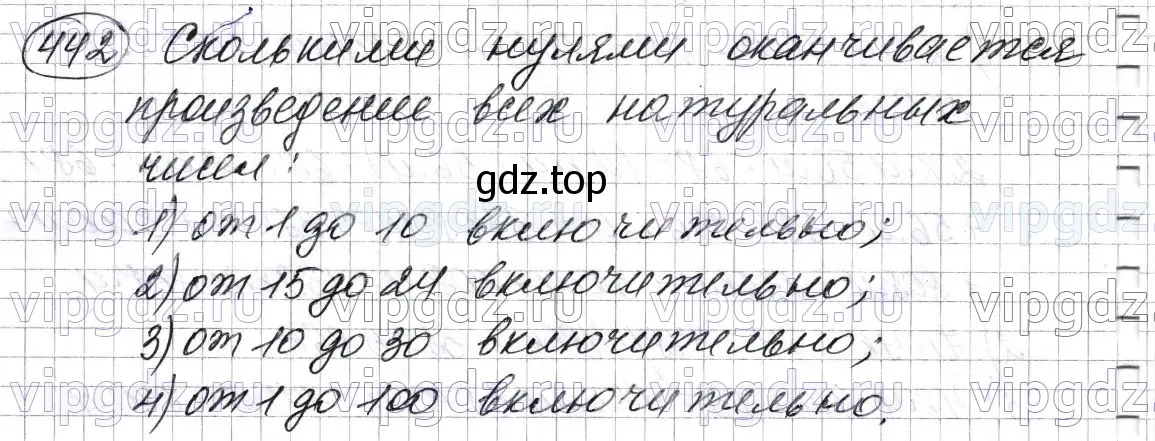 442 Сколькими нулями оканчивается
произведение всех натуральных
чисел:
gdz.top
1) от 1 до 10 включительно;
2) от 15 до 24 включительно;
3) от 10 до 30 включительно;
4) от 1 до 100 включительно.